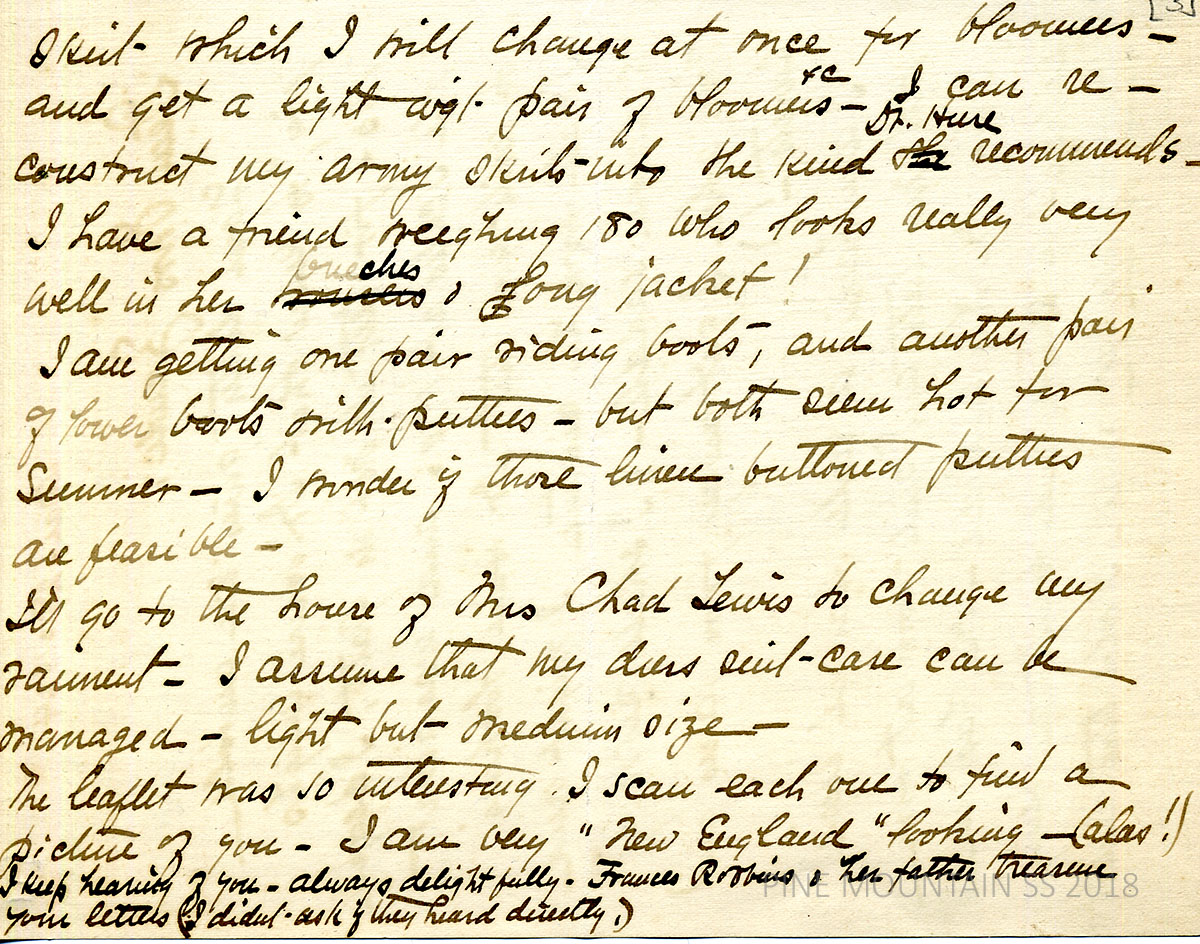 [3]
skirt which I will change at once for bloomers –
and get a light wgt. pair of bloomers &c – I can re –
construct my army skirts into the kind Dr. Huse recommends –
I have a friend weighing 180 who looks really very
well in her breeches & long jacket!
I am getting one pair riding boots, and another pair
of lower boots with puttees – but both seem hot for
Summer – I wonder if those linen buttoned puttees
are feasible –
I'll go to the house of Mrs Chad Lewis to change my
raiment – I assume that my dress suit-case can be
managed – light but medium size –
The leaflet was so interesting. I scan each one to find a
picture of you – I am very "New England" looking – (alas!)
I keep hearing of you – always delightfully – Frances Robbins & her father treasure
your letters (I didn't ask if they heard directly.)
PINE MOUNTAIN SS 2018